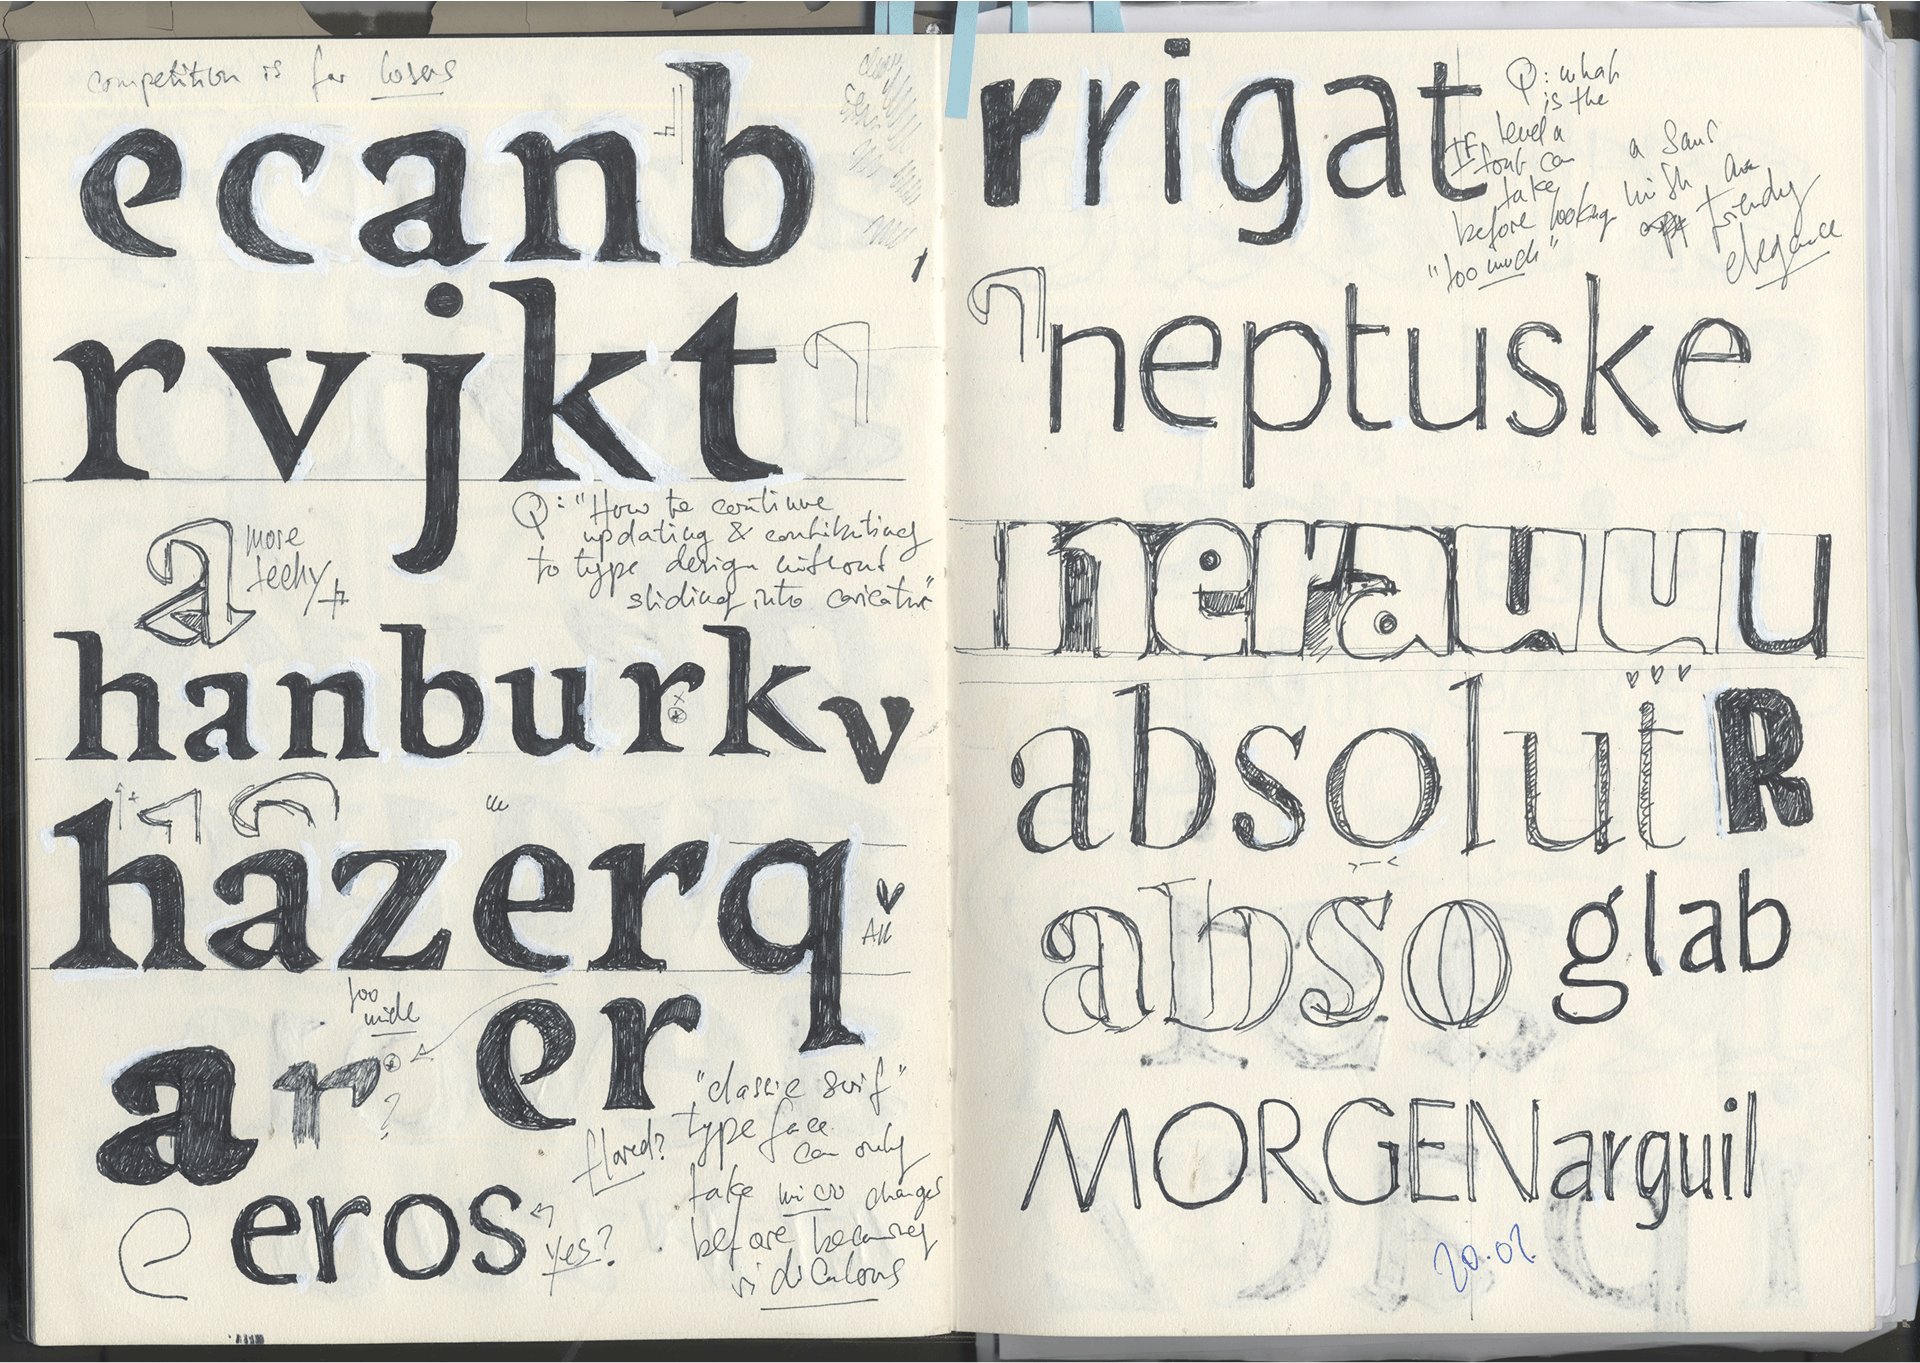 competition is for losers
ecanb
rvjkt
Q: "How to continue
updating & contributing
to type design without
sliding into caricature"
a more
techy
hanburkv
hazerq
All
too
wide
ar
?
er
"classic serif"
flared? typeface
can only
take micro changes
before becoming
ridiculous
e eros
yes?
rrigat
Q: what
is the
level a
font can
take
before looking
"too much"
a sans
with
friendly
elegance
neptuske
nerauuu
absolut R
abso glab
MORGENarguil
20.02